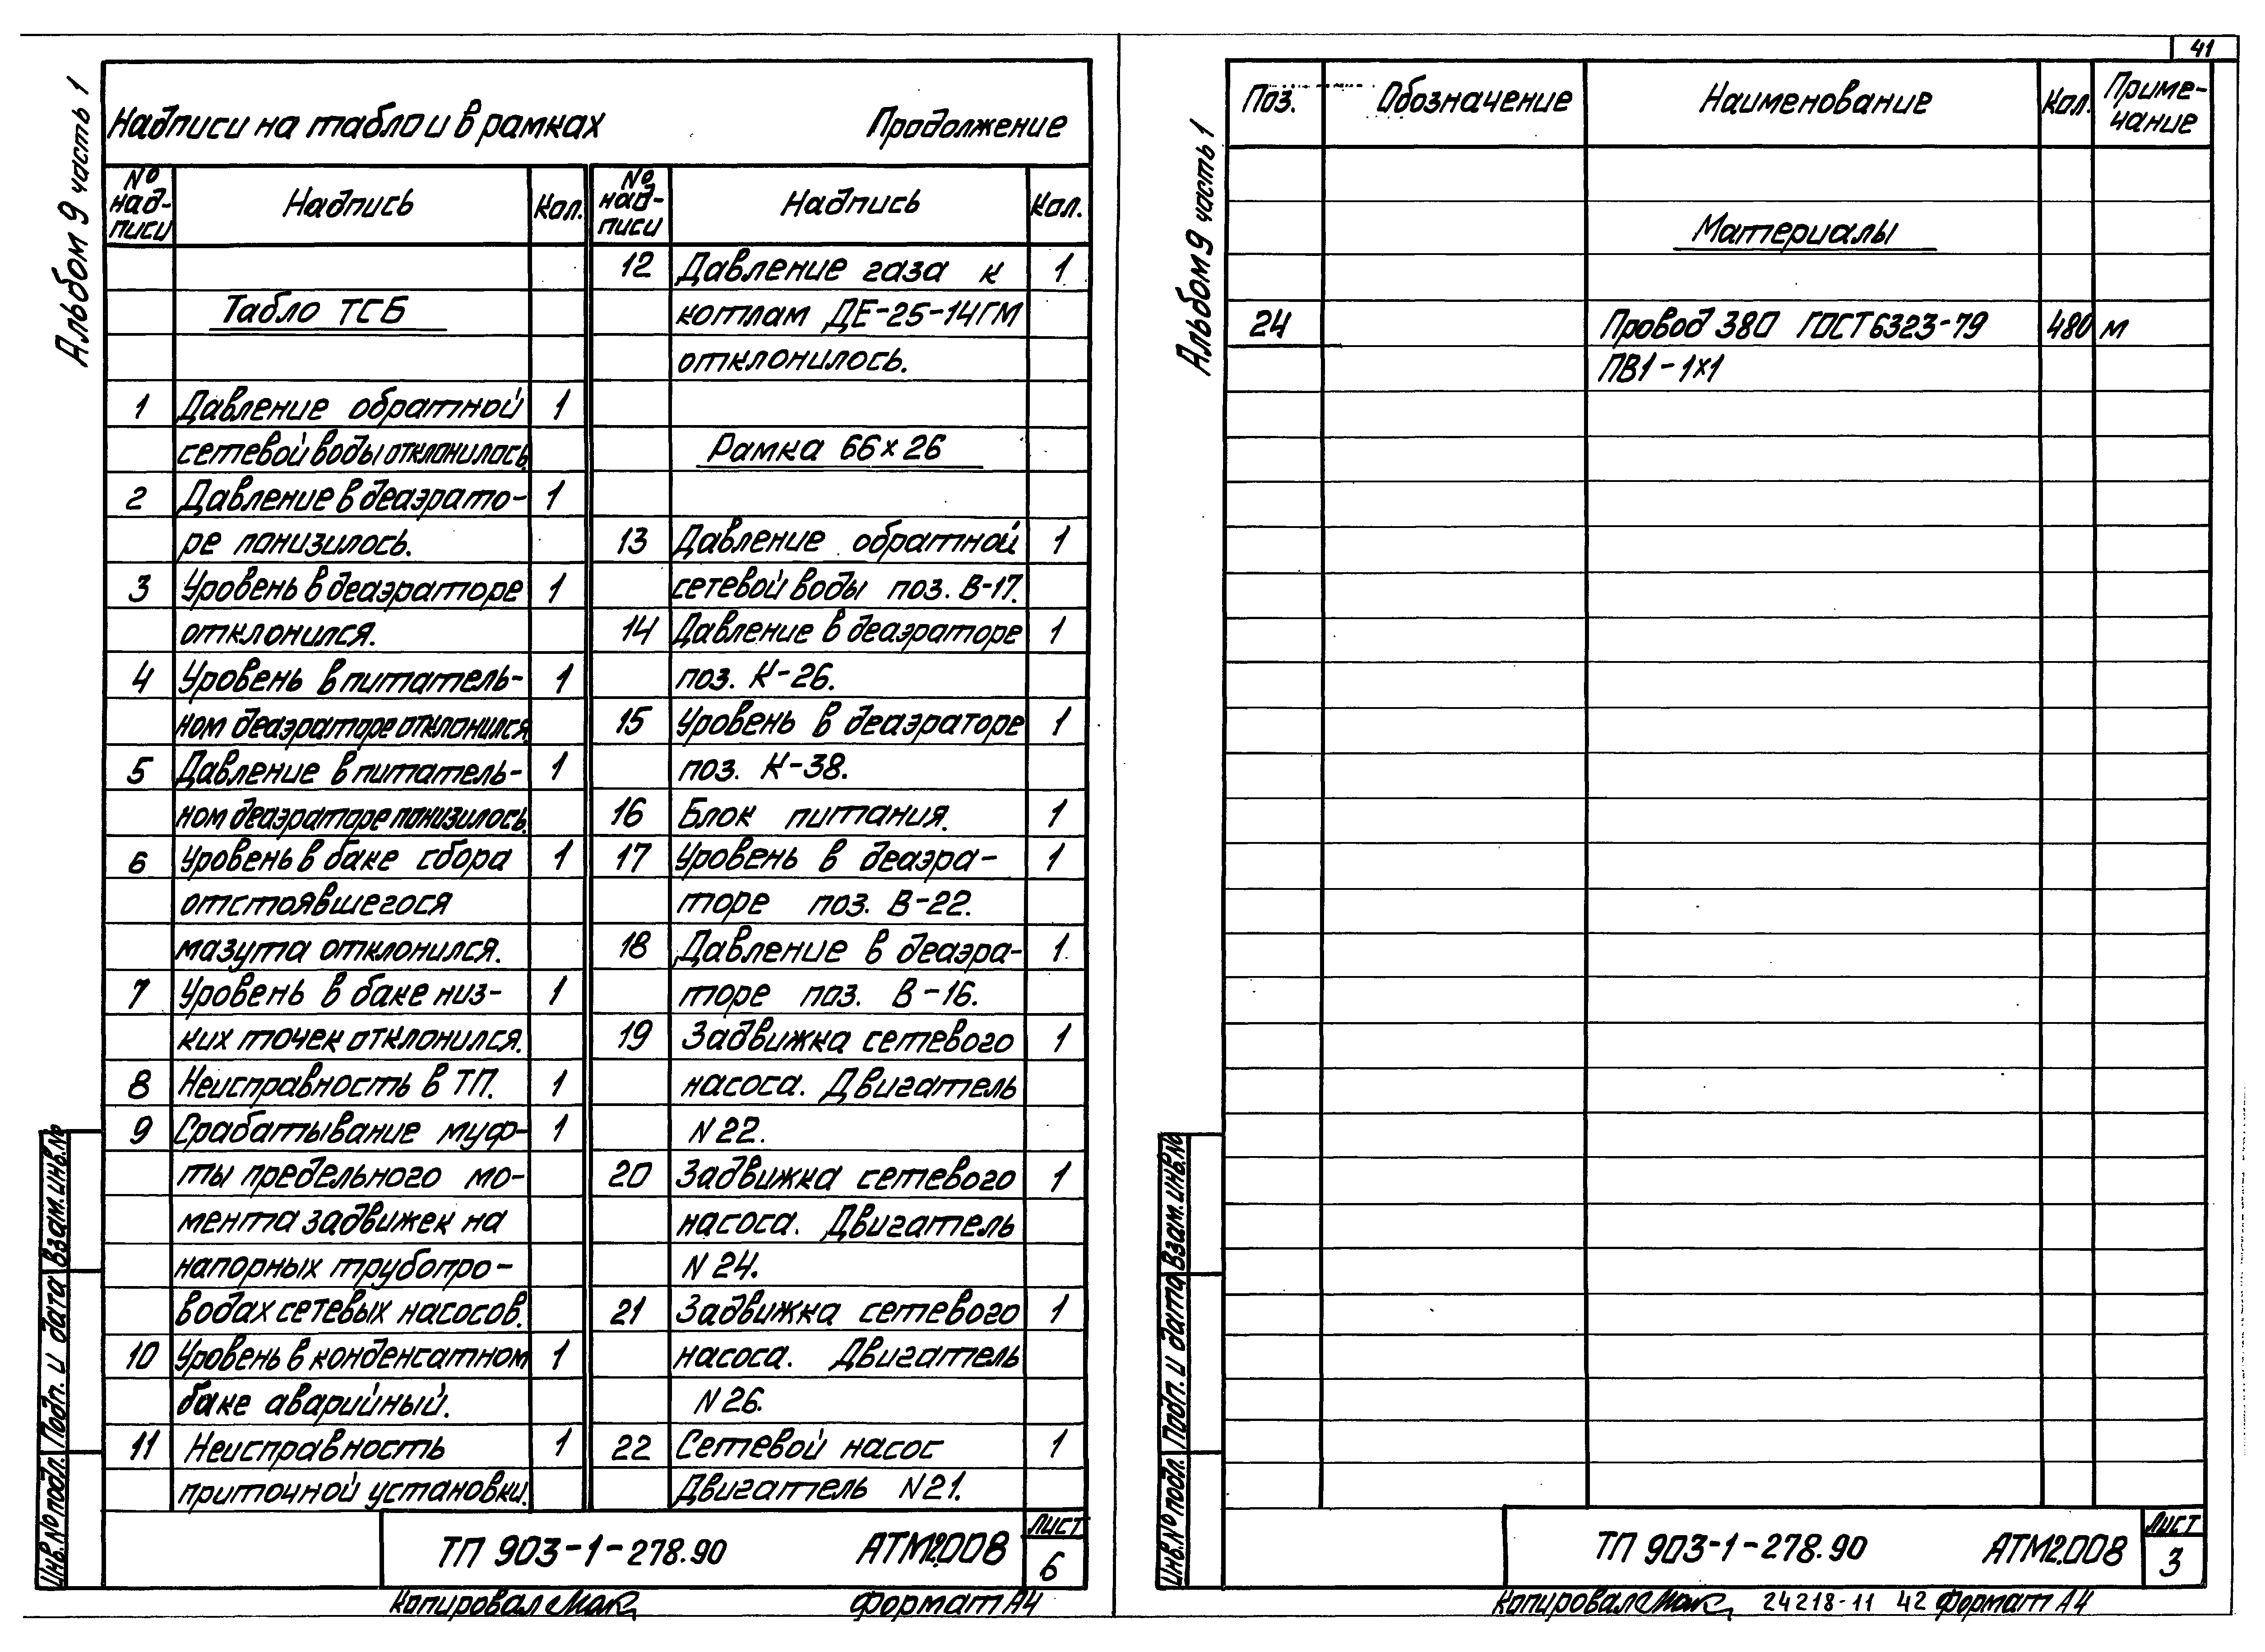 41
Альбом 9 часть 1
Надписи на табло и в рамках Продолжение
№ надписи Надпись Кол.
Табло ТСБ
1 Давление обратной 1
сетевой воды отклонилось.
2 Давление в деаэрато- 1
ре понизилось.
3 Уровень в деаэраторе 1
отклонился.
4 Уровень в питатель- 1
ном деаэраторе отклонился.
5 Давление в питатель- 1
ном деаэраторе понизилось.
6 Уровень в баке сбора 1
отстоявшегося
мазута отклонился.
7 Уровень в баке низ- 1
ких точек отклонился.
8 Неисправность в ТП. 1
9 Срабатывание муф- 1
ты предельного мо-
мента задвижек на
напорных трубопро-
водах сетевых насосов.
10 Уровень в конденсатном 1
баке аварийный.
11 Неисправность 1
приточной установки.
№ над-
писи Надпись Кол.
12 Давление газа к 1
котлам ДЕ-25-14ГМ
отклонилось.
Рамка 66×26
13 Давление обратной 1
сетевой воды поз. В-17.
14 Давление в деаэраторе 1
поз. К-26.
15 Уровень в деаэраторе 1
поз. К-38.
16 Блок питания. 1
17 Уровень в деаэра- 1
торе поз. В-22.
18 Давление в деаэра- 1
торе поз. В-16.
19 Задвижка сетевого 1
насоса. Двигатель
N22.
20 Задвижка сетевого 1
насоса. Двигатель
N24.
21 Задвижка сетевого 1
насоса. Двигатель
N26.
22 Сетевой насос 1
Двигатель N21.
Взам.инв.№
Подп. и дата
Инв.№ подл.
ТП 903-1-278.90 АТМ2.008
Лист
6
Копировал Формат А4
Альбом 9 часть 1
Поз. Обозначение Наименование Кол. Приме-
чание
Материалы
24 Провод 380 ГОСТ 6323-79 480 м
ПВ1-1×1
Взам.инв.№
Подп. и дата
Инв.№ подл.
ТП 903-1-278.90 АТМ2.008
Лист
3
Копировал 24218-11 42 Формат А4